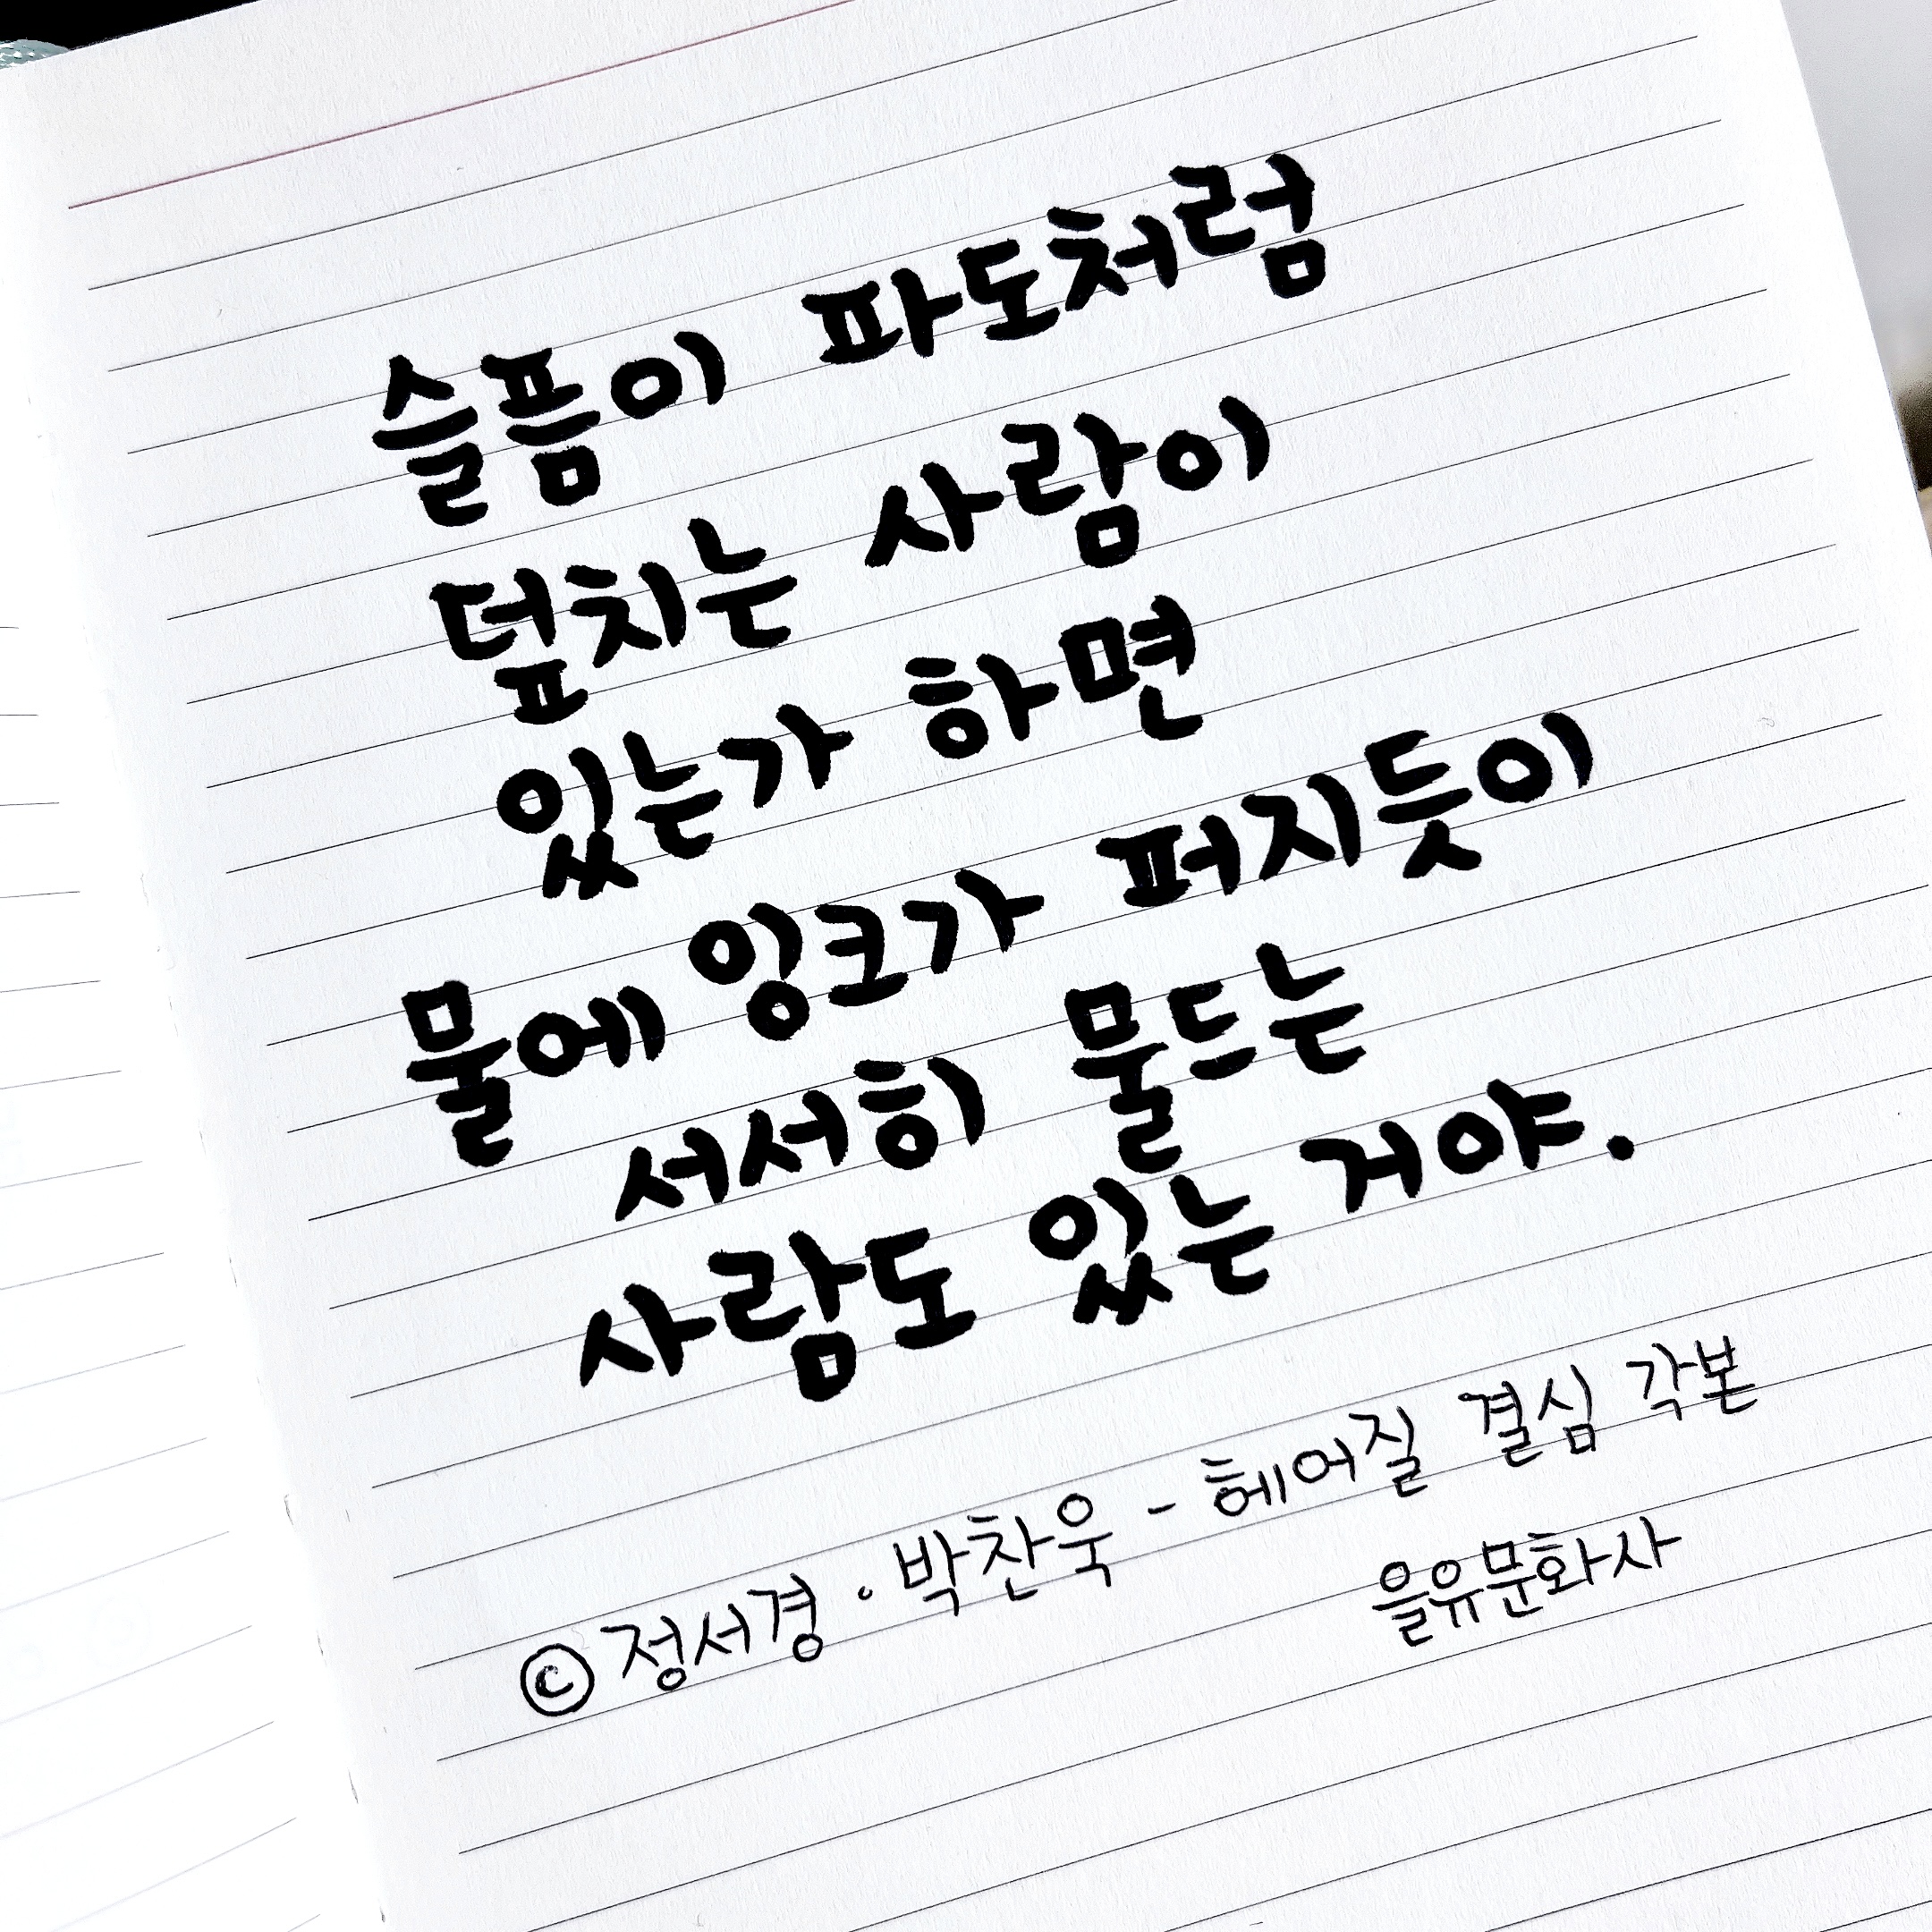 슬픔이 파도처럼
덮치는 사람이
있는가 하면
물에 잉크가 퍼지듯이
서서히 물드는
사람도 있는 거야.
©정서경·박찬욱 - 헤어질 결심 각본
을유문화사